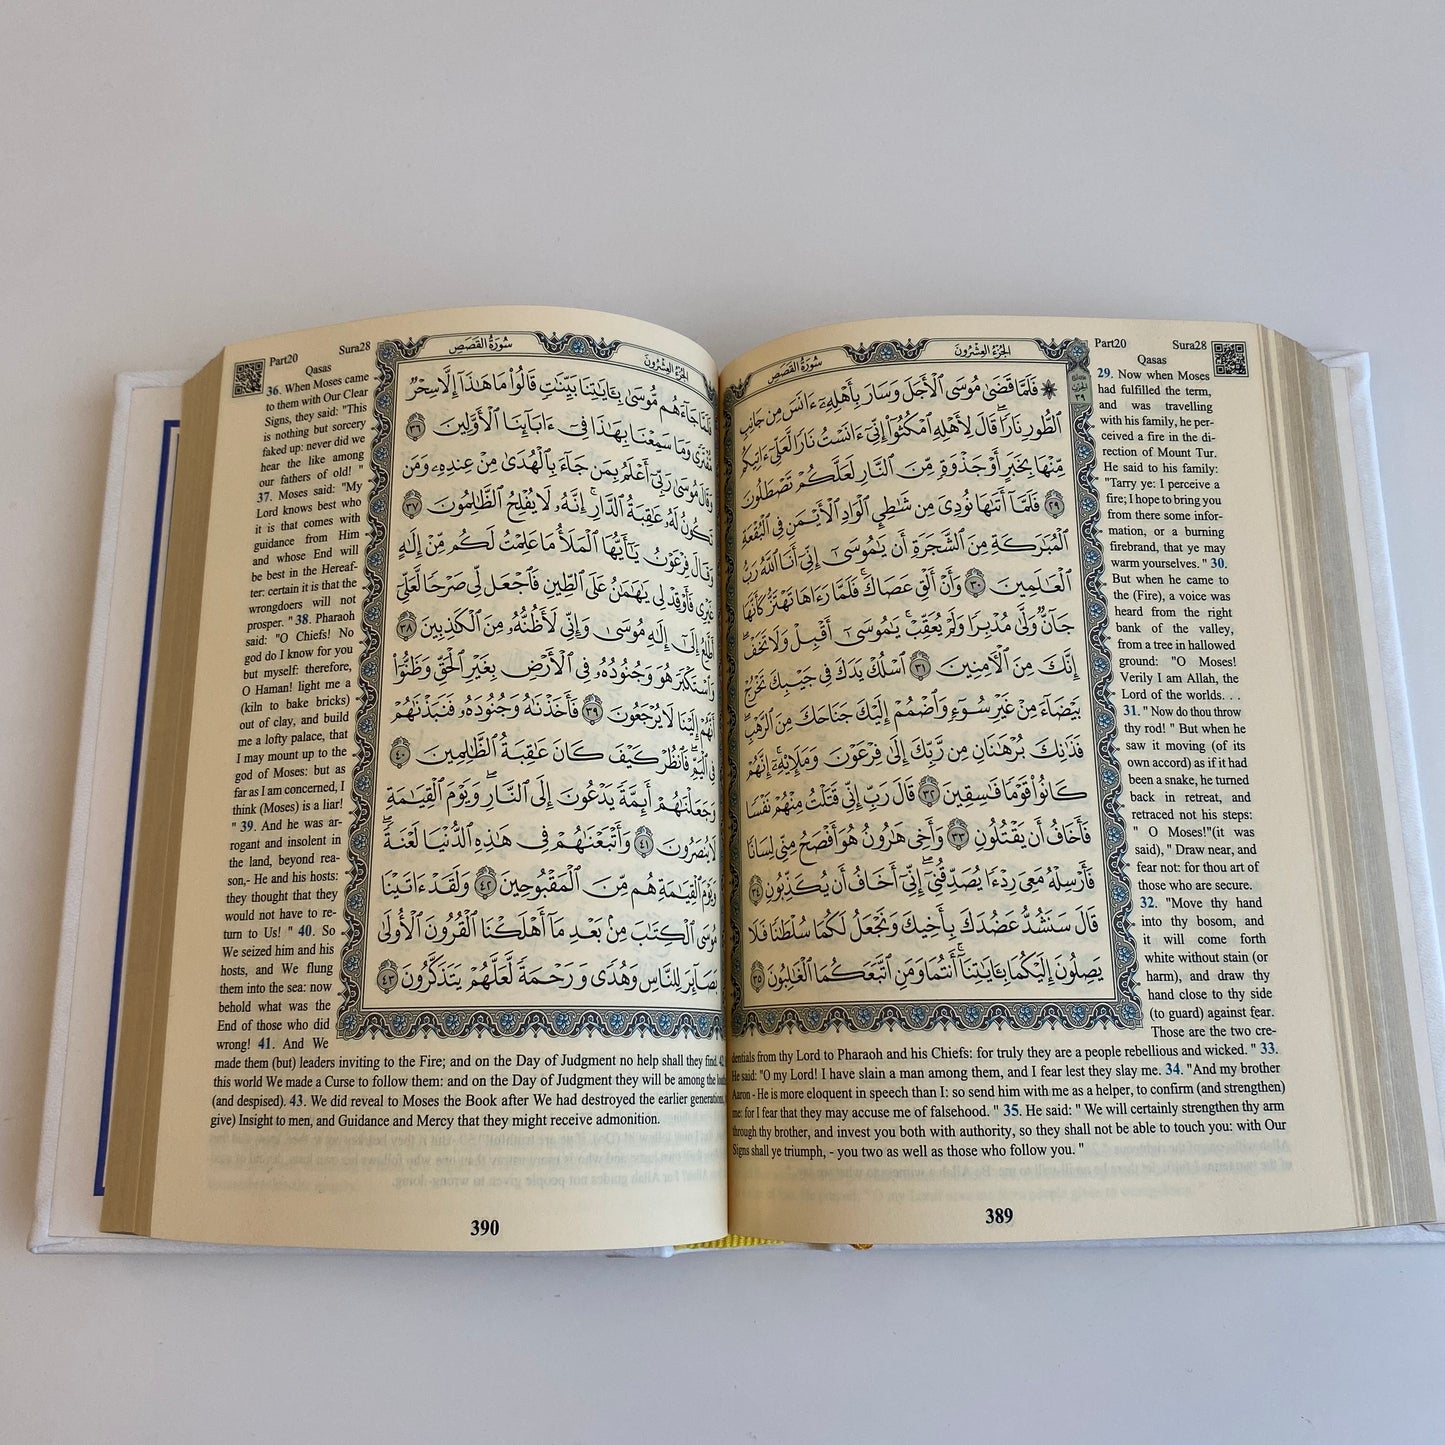 الجُزْءُ العِشْرُونَ سُورَةُ القَصَصِ
فَلَمَّا قَضَىٰ مُوسَى ٱلْأَجَلَ وَسَارَ بِأَهْلِهِۦٓ ءَانَسَ مِن جَانِبِ
ٱلطُّورِ نَارًا قَالَ لِأَهْلِهِ ٱمْكُثُوٓا۟ إِنِّىٓ ءَانَسْتُ نَارًا لَّعَلِّىٓ ءَاتِيكُم
مِّنْهَا بِخَبَرٍ أَوْ جَذْوَةٍ مِّنَ ٱلنَّارِ لَعَلَّكُمْ تَصْطَلُونَ
٢٩ فَلَمَّآ أَتَىٰهَا نُودِىَ مِن شَٰطِئِ ٱلْوَادِ ٱلْأَيْمَنِ فِى ٱلْبُقْعَةِ
ٱلْمُبَٰرَكَةِ مِنَ ٱلشَّجَرَةِ أَن يَٰمُوسَىٰٓ إِنِّىٓ أَنَا ٱللَّهُ رَبُّ
ٱلْعَٰلَمِينَ ٣٠ وَأَنْ أَلْقِ عَصَاكَ ۖ فَلَمَّا رَءَاهَا تَهْتَزُّ كَأَنَّهَا
جَآنٌّ وَلَّىٰ مُدْبِرًا وَلَمْ يُعَقِّبْ ۚ يَٰمُوسَىٰٓ أَقْبِلْ وَلَا تَخَفْ ۖ
إِنَّكَ مِنَ ٱلْءَامِنِينَ ٣١ ٱسْلُكْ يَدَكَ فِى جَيْبِكَ تَخْرُجْ
بَيْضَآءَ مِنْ غَيْرِ سُوٓءٍ وَٱضْمُمْ إِلَيْكَ جَنَاحَكَ مِنَ ٱلرَّهْبِ ۖ
فَذَٰنِكَ بُرْهَٰنَانِ مِن رَّبِّكَ إِلَىٰ فِرْعَوْنَ وَمَلَإِيْهِۦٓ ۚ إِنَّهُمْ
كَانُوا۟ قَوْمًا فَٰسِقِينَ ٣٢ قَالَ رَبِّ إِنِّى قَتَلْتُ مِنْهُمْ نَفْسًا
فَأَخَافُ أَن يَقْتُلُونِ ٣٣ وَأَخِى هَٰرُونُ هُوَ أَفْصَحُ مِنِّى لِسَانًا
فَأَرْسِلْهُ مَعِىَ رِدْءًا يُصَدِّقُنِىٓ ۖ إِنِّىٓ أَخَافُ أَن يُكَذِّبُونِ ٣٤
قَالَ سَنَشُدُّ عَضُدَكَ بِأَخِيكَ وَنَجْعَلُ لَكُمَا سُلْطَٰنًا فَلَا
يَصِلُونَ إِلَيْكُمَا ۚ بِـَٔايَٰتِنَآ أَنتُمَا وَمَنِ ٱتَّبَعَكُمَا ٱلْغَٰلِبُونَ ٣٥
Part20 Sura28
Qasas
29. Now when Moses
had fulfilled the term,
and was travelling
with his family, he per-
ceived a fire in the di-
rection of Mount Tur.
He said to his family:
"Tarry ye: I perceive a
fire; I hope to bring you
from there some infor-
mation, or a burning
firebrand, that ye may
warm yourselves. " 30.
But when he came to
the (Fire), a voice was
heard from the right
bank of the valley,
from a tree in hallowed
ground: "O Moses!
Verily I am Allah, the
Lord of the worlds. . .
31. " Now do thou throw
thy rod! " But when he
saw it moving (of its
own accord) as if it had
been a snake, he turned
back in retreat, and
retraced not his steps:
" O Moses!"(it was
said), " Draw near, and
fear not: for thou art of
those who are secure.
32. "Move thy hand
into thy bosom, and
it will come forth
white without stain (or
harm), and draw thy
hand close to thy side
(to guard) against fear.
Those are the two cre-
dentials from thy Lord to Pharaoh and his Chiefs: for truly they are a people rebellious and wicked. " 33.
He said: "O my Lord! I have slain a man among them, and I fear lest they slay me. 34. "And my brother
Aaron - He is more eloquent in speech than I: so send him with me as a helper, to confirm (and strengthen)
me: for I fear that they may accuse me of falsehood. " 35. He said: " We will certainly strengthen thy arm
through thy brother, and invest you both with authority, so they shall not be able to touch you: with Our
Signs shall ye triumph, - you two as well as those who follow you. "
389
الجُزْءُ العِشْرُونَ سُورَةُ القَصَصِ
فَلَمَّا جَآءَهُم مُّوسَىٰ بِـَٔايَٰتِنَا بَيِّنَٰتٍ قَالُوا۟ مَا هَٰذَآ إِلَّا سِحْرٌ
مُّفْتَرًى وَمَا سَمِعْنَا بِهَٰذَا فِىٓ ءَابَآئِنَا ٱلْأَوَّلِينَ ٣٦
وَقَالَ مُوسَىٰ رَبِّىٓ أَعْلَمُ بِمَن جَآءَ بِٱلْهُدَىٰ مِنْ عِندِهِۦ وَمَن
تَكُونُ لَهُۥ عَٰقِبَةُ ٱلدَّارِ ۖ إِنَّهُۥ لَا يُفْلِحُ ٱلظَّٰلِمُونَ ٣٧
وَقَالَ فِرْعَوْنُ يَٰٓأَيُّهَا ٱلْمَلَأُ مَا عَلِمْتُ لَكُم مِّنْ إِلَٰهٍ
غَيْرِى فَأَوْقِدْ لِى يَٰهَٰمَٰنُ عَلَى ٱلطِّينِ فَٱجْعَل لِّى صَرْحًا لَّعَلِّىٓ
أَطَّلِعُ إِلَىٰٓ إِلَٰهِ مُوسَىٰ وَإِنِّى لَأَظُنُّهُۥ مِنَ ٱلْكَٰذِبِينَ ٣٨
وَٱسْتَكْبَرَ هُوَ وَجُنُودُهُۥ فِى ٱلْأَرْضِ بِغَيْرِ ٱلْحَقِّ وَظَنُّوٓا۟
أَنَّهُمْ إِلَيْنَا لَا يُرْجَعُونَ ٣٩ فَأَخَذْنَٰهُ وَجُنُودَهُۥ فَنَبَذْنَٰهُمْ
فِى ٱلْيَمِّ ۖ فَٱنظُرْ كَيْفَ كَانَ عَٰقِبَةُ ٱلظَّٰلِمِينَ ٤٠
وَجَعَلْنَٰهُمْ أَئِمَّةً يَدْعُونَ إِلَى ٱلنَّارِ ۖ وَيَوْمَ ٱلْقِيَٰمَةِ
لَا يُنصَرُونَ ٤١ وَأَتْبَعْنَٰهُمْ فِى هَٰذِهِ ٱلدُّنْيَا لَعْنَةً ۖ
وَيَوْمَ ٱلْقِيَٰمَةِ هُم مِّنَ ٱلْمَقْبُوحِينَ ٤٢ وَلَقَدْ ءَاتَيْنَا
مُوسَى ٱلْكِتَٰبَ مِنۢ بَعْدِ مَآ أَهْلَكْنَا ٱلْقُرُونَ ٱلْأُولَىٰ
بَصَآئِرَ لِلنَّاسِ وَهُدًى وَرَحْمَةً لَّعَلَّهُمْ يَتَذَكَّرُونَ ٤٣
Part20 Sura28
Qasas
36. When Moses came
to them with Our Clear
Signs, they said: "This
is nothing but sorcery
faked up: never did we
hear the like among
our fathers of old! "
37. Moses said: "My
Lord knows best who
it is that comes with
guidance from Him
and whose End will
be best in the Hereaf-
ter: certain it is that the
wrongdoers will not
prosper. " 38. Pharaoh
said: "O Chiefs! No
god do I know for you
but myself: therefore,
O Haman! light me a
(kiln to bake bricks)
out of clay, and build
me a lofty palace, that
I may mount up to the
god of Moses: but as
far as I am concerned, I
think (Moses) is a liar!
" 39. And he was ar-
rogant and insolent in
the land, beyond rea-
son,- He and his hosts:
they thought that they
would not have to re-
turn to Us! " 40. So
We seized him and his
hosts, and We flung
them into the sea: now
behold what was the
End of those who did
wrong! 41. And We
made them (but) leaders inviting to the Fire; and on the Day of Judgment no help shall they find.
this world We made a Curse to follow them: and on the Day of Judgment they will be among the
(and despised). 43. We did reveal to Moses the Book after We had destroyed the earlier generations,
give) Insight to men, and Guidance and Mercy that they might receive admonition.
390